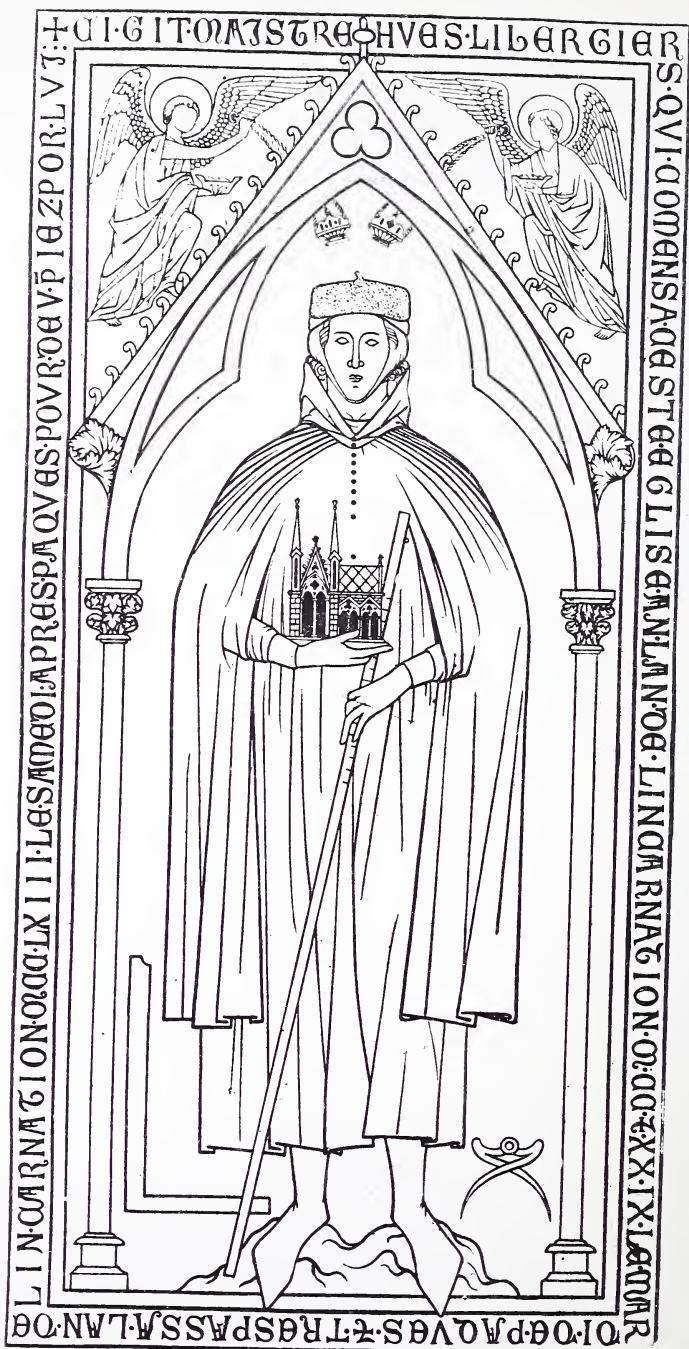 +CI·GIT·MAISTRE·HVES·LIBERGIER
S·QVI·COMENSA·CESTE·EGLISE·AN·LAN·DE·LINCARNATION·M·CC·⁊·XX·IX·LEMAR
DI·DE·PAQVES·⁊·TRESPASSA·LAN·DE
LINCARNATION·M·CC·LXIII·LESAMEDI·APRES·PAQVES·POVR·DEV·P̄IEZ·POR·LVI: